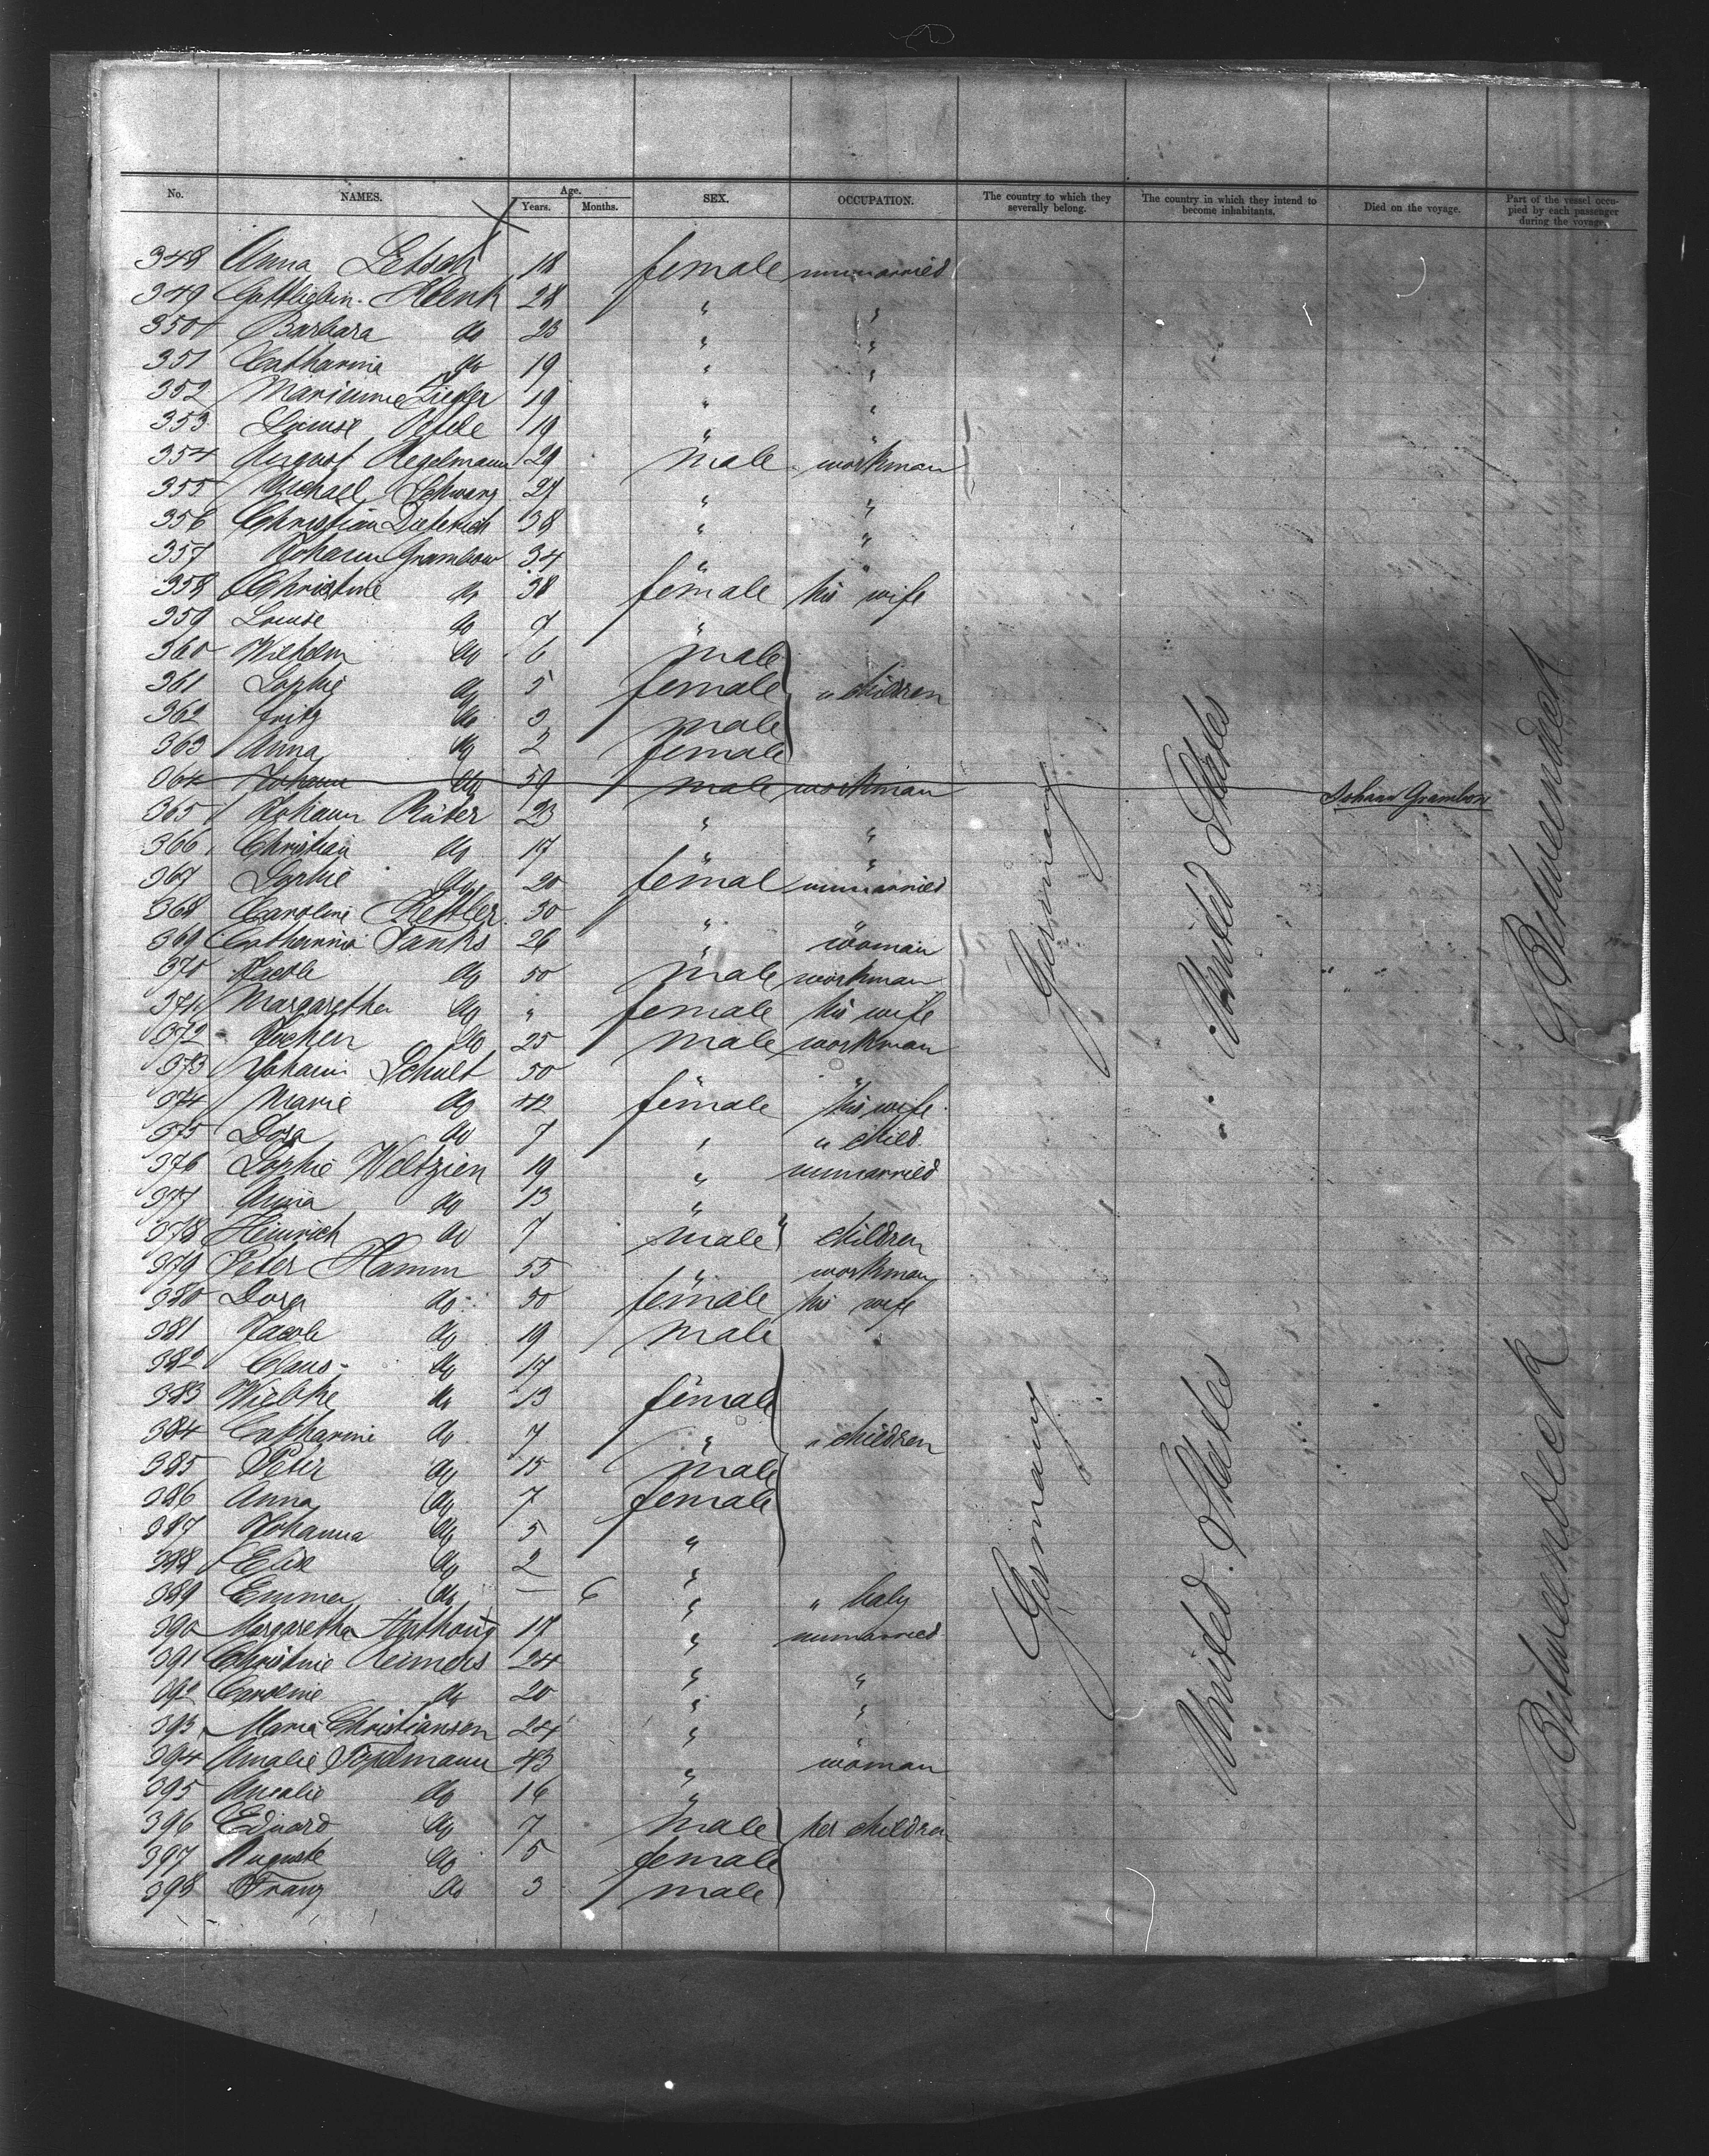 No. NAMES. Age. Years. Months. SEX. OCCUPATION. The country to which they severally belong. The country in which they intend to become inhabitants. Died on the voyage. Part of the vessel occupied by each passenger during the voyage.
348 Anna Letsch 18 female unmarried
349 Gottliebin Klenk 28 " "
350 Barbara do 23 " "
351 Catharine do 19 " "
352 Marianne Ziegler 19 " "
353 Louise 19 " "
354 August Regelmann 29 male workman
355 Michael Schwarz 27 " "
356 Christian Dieterich 38 " "
357 Johann Grambow 34 " "
358 Christine do 38 female his wife
359 Louise do 7 "
360 Wilhelm do 6 male
361 Sophie do 5 female " children
362 Fritz do 3 male
363 Anna do 2 female
364 Johann do 59 male workman Johann Grambow
365 Johann Rüter 23 " "
366 Christian do 17 " "
367 Sophie do 20 femal unmarried
368 Caroline Kettler 30 "
369 Catharine Tanks 26 " woman
370 Jacob do 50 male workman
371 Margaretha do " female his wife
372 Jochen do 25 male workman
373 Johann Schult 50 " "
374 Marie do 42 female his wife
375 Dora do 7 " " child
376 Sophie Weltzien 19 " unmarried
377 Anna do 13 "
378 Heinrich do 7 male " children
379 Peter Hamm 55 " workman
380 Dora do 50 female his wife
381 Jacob do 19 male
382 Claus do 17
383 Wiebke do 13 female
384 Catharine do 7 " " children
385 Peter do 15 male
386 Anna do 7 female
387 Johanna do 5 "
388 Elise do 2 "
389 Emma do — 6 " " baby
390 Margaretha Anthony 17 " unmarried
391 Christine Reimers 24 " "
392 Caroline do 20 " "
393 Maria Christiansen 24 "
394 Amalie Topelmann 43 " woman
395 Amalie do 16 "
396 Eduard do 7 male her children
397 Auguste do 5 female
398 Franz do 3 male
Germany
United States
Betweendeck
Germany
United States
Betweendeck